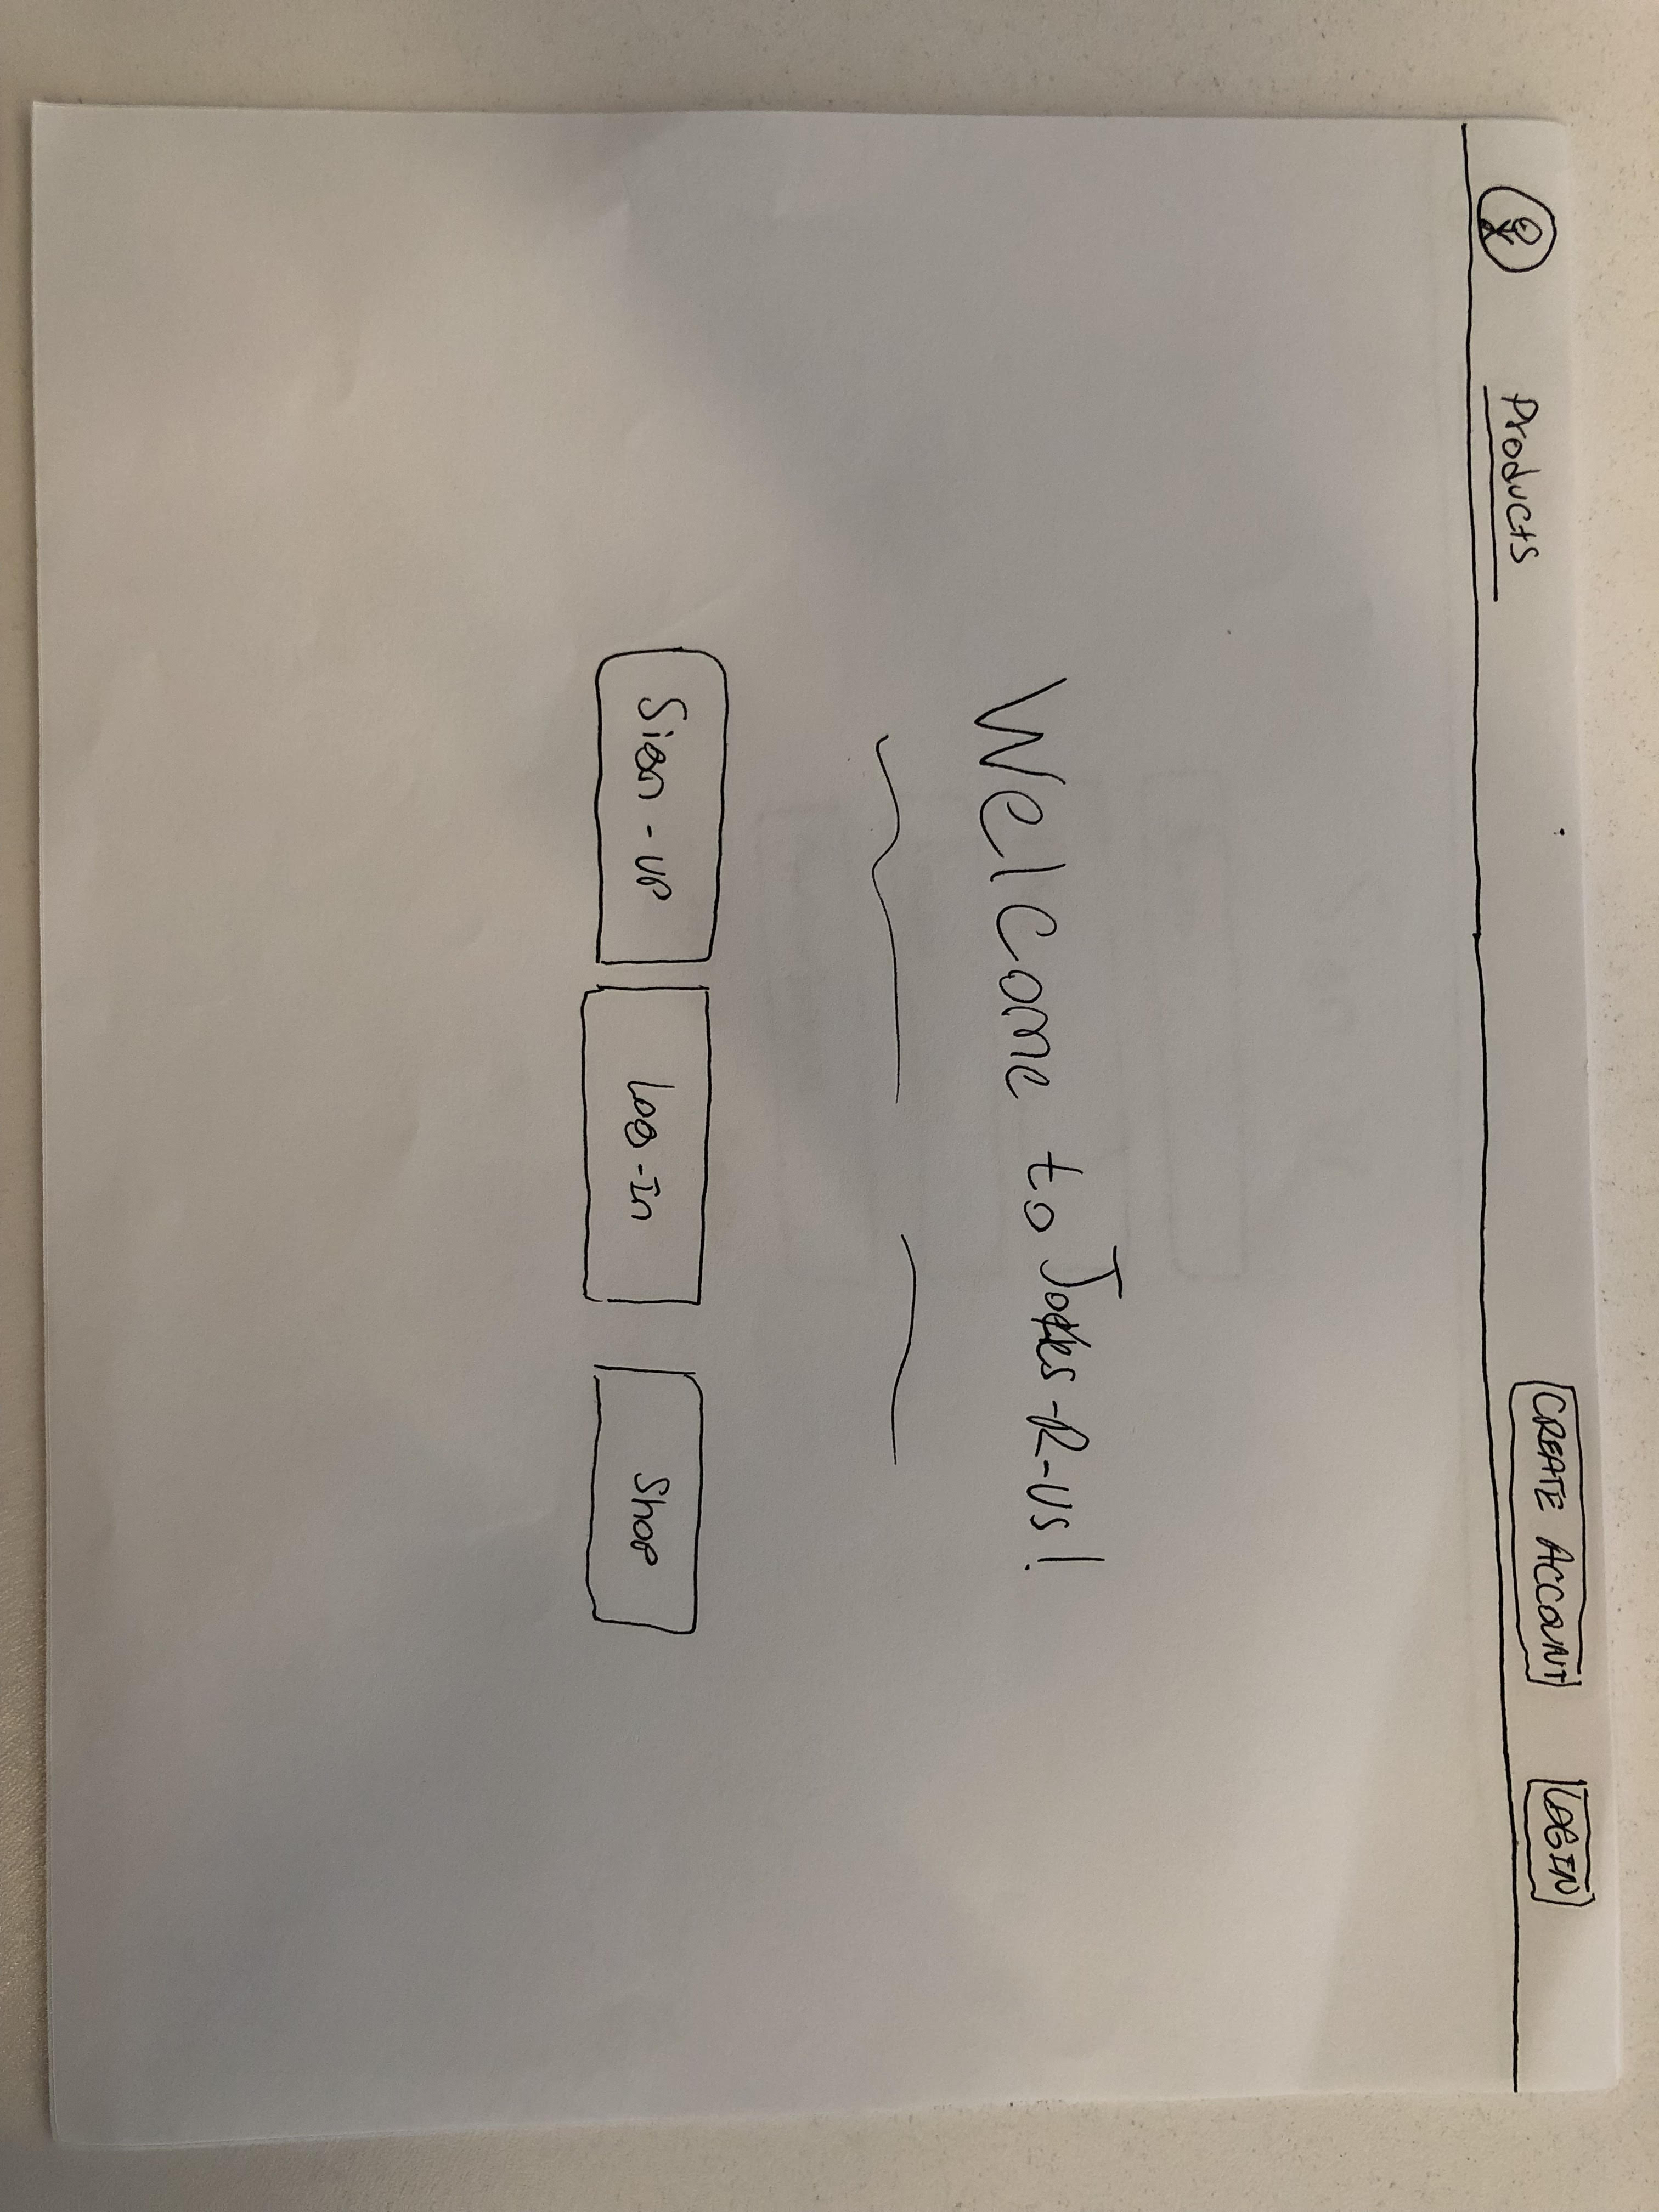 Products
CREATE ACCOUNT
LOGIN
Welcome to Jokes-R-us!
Sign-up
Log-In
Shop